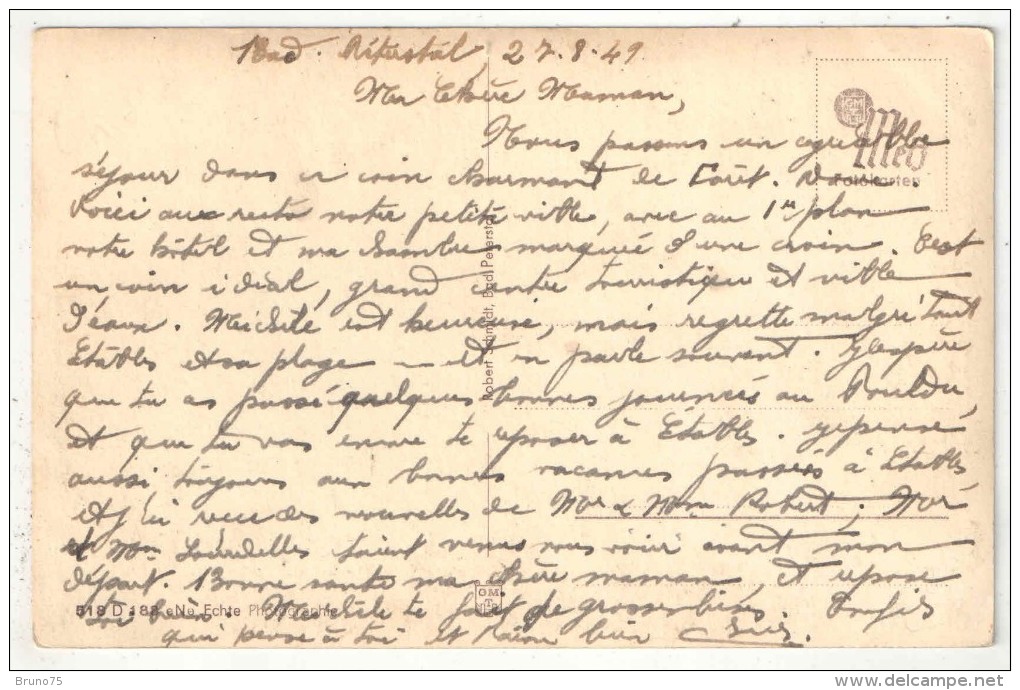 Bad. Peterstal, 27.8.49
Ma Chère Maman,
Nous passons un agréable
séjour dans un coin charmant de Forêt.
Voici au recto notre petite ville, avec au 1er plan
notre hôtel et ma chambre marquée d'une croix. C'est
un coin idéal, grand centre touristique et ville
d'eaux. Michèle est heureuse, mais regrette malgré tout
Etables et sa plage — et en parle souvent. J'espère
que tu as passé quelques bonnes journées au Pouldu,
et que tu vas encore te reposer à Etables. Je pense
aussi toujours aux bonnes vacances passées à Etables,
et j'ai reçu des nouvelles de Mr & Mme Robert; Mr
et Mme Lourdelles étaient venus nous voir avant mon
départ. Bonne santé ma chère maman, et repose
toi bien. Michèle te fait de grosses bises. Ton fils
qui pense à toi et t'aime bien
Meb
Fotokarten
Robert Schmidt, Bad Peterstal
OM
518 D 188 eNe Echte Photographie
Bruno75
delcampe.net